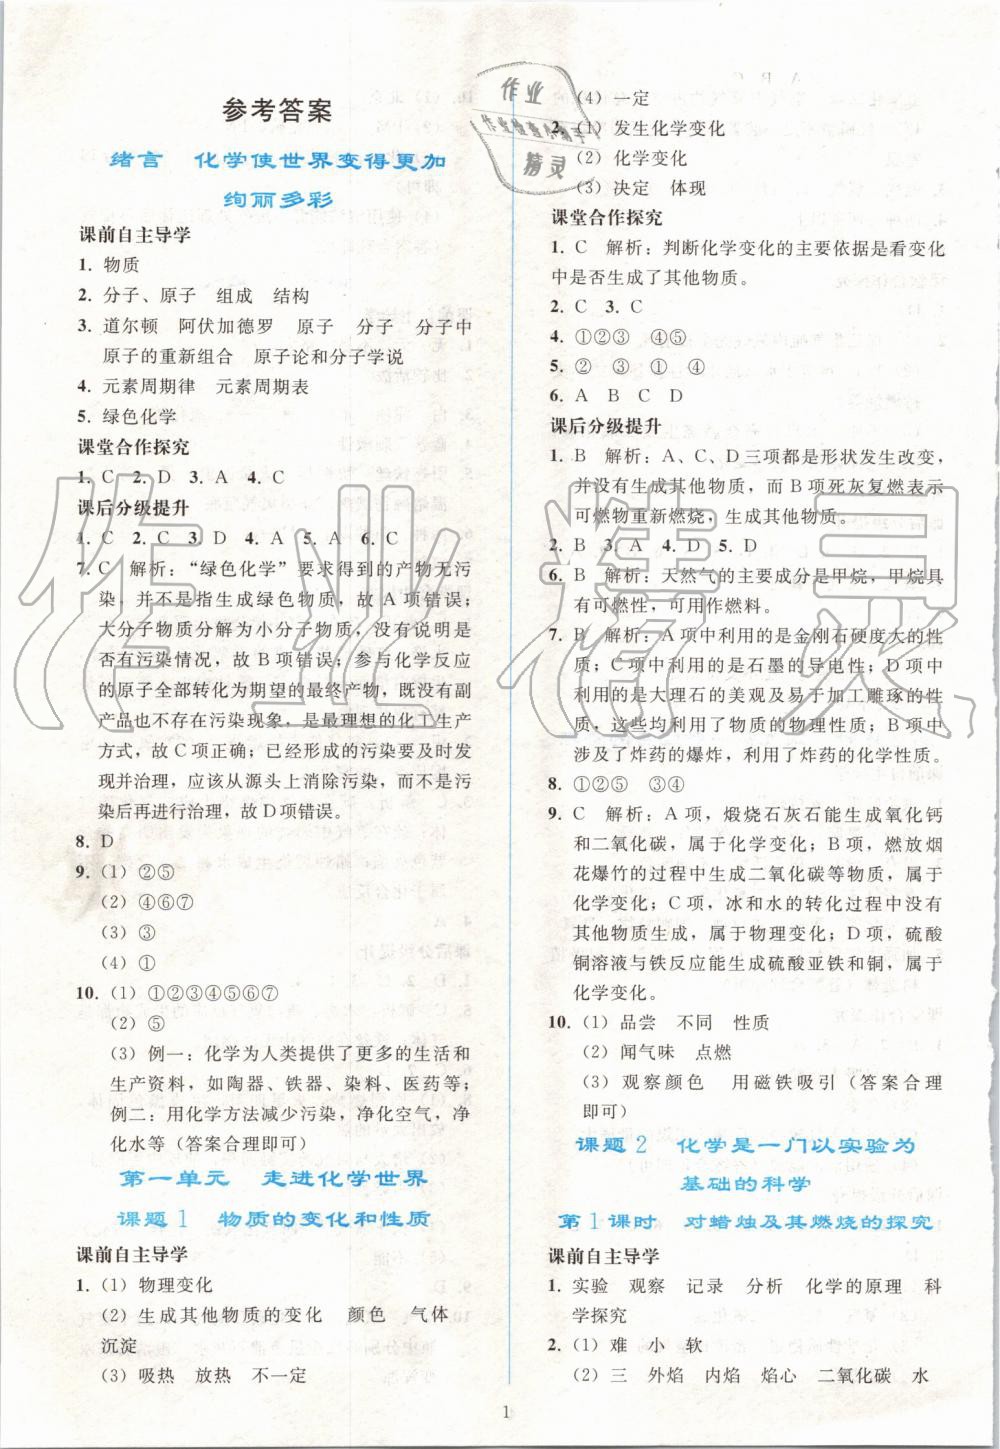 参考答案
绪言 化学使世界变得更加
绚丽多彩
课前自主导学
1. 物质
2. 分子、原子 组成 结构
3. 道尔顿 阿伏加德罗 原子 分子 分子中
原子的重新组合 原子论和分子学说
4. 元素周期律 元素周期表
5. 绿色化学
课堂合作探究
1. C 2. D 3. A 4. C
课后分级提升
1. C 2. C 3. D 4. A 5. A 6. C
7. C 解析：“绿色化学”要求得到的产物无污
染，并不是指生成绿色物质，故 A 项错误；
大分子物质分解为小分子物质，没有说明是
否有污染情况，故 B 项错误；参与化学反应
的原子全部转化为期望的最终产物，既没有副
产品也不存在污染现象，是最理想的化工生产
方式，故 C 项正确；已经形成的污染要及时发
现并治理，应该从源头上消除污染，而不是污
染后再进行治理，故 D 项错误。
8. D
9. （1）②⑤
（2）④⑥⑦
（3）③
（4）①
10. （1）①②③④⑤⑥⑦
（2）⑤
（3）例一：化学为人类提供了更多的生活和
生产资料，如陶器、铁器、染料、医药等；
例二：用化学方法减少污染，净化空气，净
化水等（答案合理即可）
第一单元 走进化学世界
课题 1 物质的变化和性质
课前自主导学
1. （1）物理变化
（2）生成其他物质的变化 颜色 气体
沉淀
（3）吸热 放热 不一定
（4）一定
2. （1）发生化学变化
（2）化学变化
（3）决定 体现
课堂合作探究
1. C 解析：判断化学变化的主要依据是看变化
中是否生成了其他物质。
2. C 3. C
4. ①②③ ④⑤
5. ② ③ ① ④
6. A B C D
课后分级提升
1. B 解析：A、C、D 三项都是形状发生改变，
并没有生成其他物质，而 B 项死灰复燃表示
可燃物重新燃烧，生成其他物质。
2. B 3. A 4. D 5. D
6. B 解析：天然气的主要成分是甲烷，甲烷具
有可燃性，可用作燃料。
7. B 解析：A 项中利用的是金刚石硬度大的性
质；C 项中利用的是石墨的导电性；D 项中
利用的是大理石的美观及易于加工雕琢的性
质，这些均利用了物质的物理性质；B 项中
涉及了炸药的爆炸，利用了炸药的化学性质。
8. ①②⑤ ③④
9. C 解析：A 项，煅烧石灰石能生成氧化钙
和二氧化碳，属于化学变化；B 项，燃放烟
花爆竹的过程中生成二氧化碳等物质，属于
化学变化；C 项，冰和水的转化过程中没有
其他物质生成，属于物理变化；D 项，硫酸
铜溶液与铁反应能生成硫酸亚铁和铜，属于
化学变化。
10. （1）品尝 不同 性质
（2）闻气味 点燃
（3）观察颜色 用磁铁吸引（答案合理
即可）
课题 2 化学是一门以实验为
基础的科学
第 1 课时 对蜡烛及其燃烧的探究
课前自主导学
1. 实验 观察 记录 分析 化学的原理 科
学探究
2. （1）难 小 软
（2）三 外焰 内焰 焰心 二氧化碳 水
1
作业
精灵
作业精灵